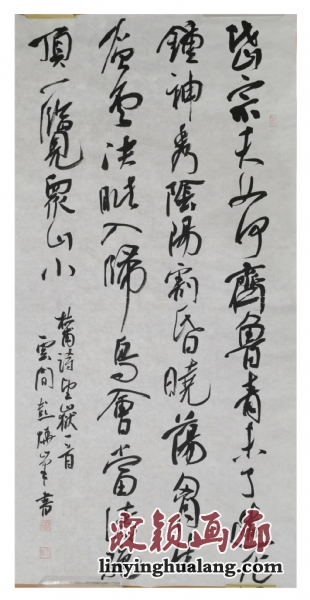 岱宗夫如何齊魯青未了造化
鍾神秀陰陽割昏曉蕩胸生
層雲決眦入歸鳥會當凌絕
頂一覽衆山小
杜甫詩望嶽一首
雲間彭書
霖颖画廊
linyinghualang.com